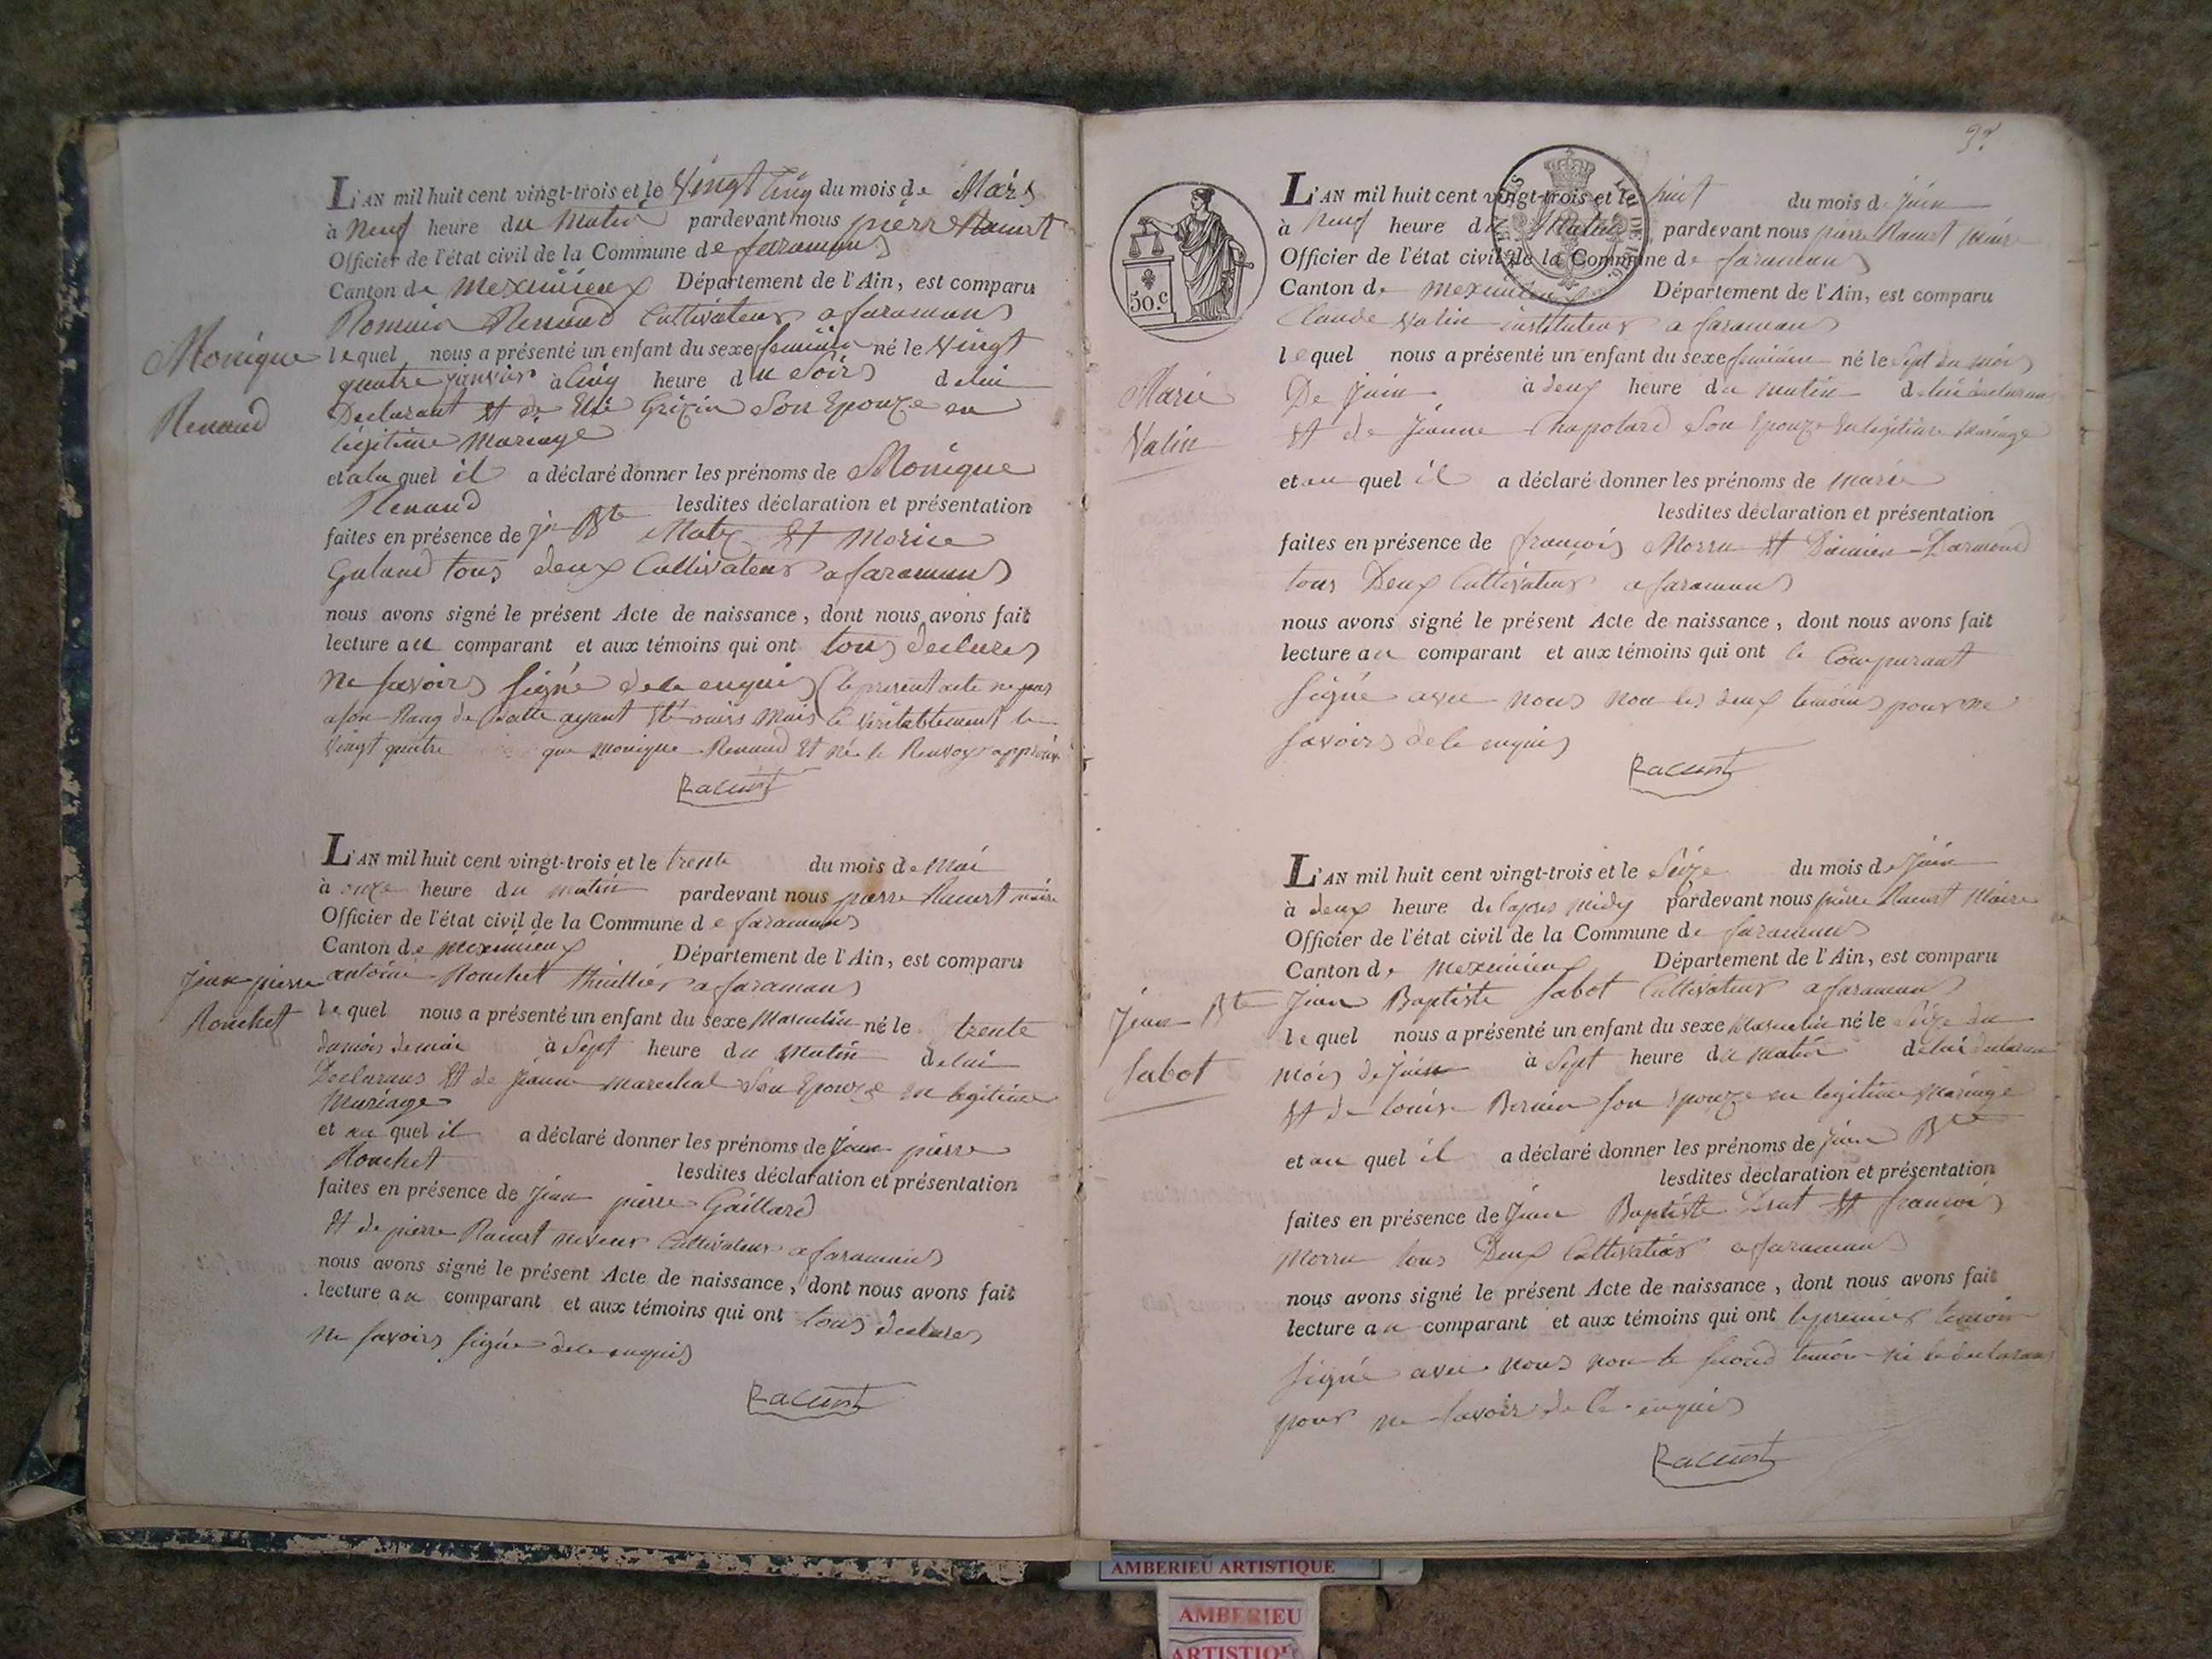 L'AN mil huit cent vingt-trois et le Vingt Cinq du mois de Mars
à Neuf heure du Matin pardevant nous pierre Racurt
Officier de l'état civil de la Commune de faramans
Canton de Meximieux Département de l'Ain, est comparu
Romain Renaud Cultivateur a faramans
Monique
Renaud
lequel nous a présenté un enfant du sexe feminin né le Vingt
quatre janvier à Cinq heure du Soir de lui
Declarant et de Grizin Son Epouze en
legitime Mariage
et a la quel il a déclaré donner les prénoms de Monique
Renaud lesdites déclaration et présentation
faites en présence de jn Bte et Morice
Galand tous deux Cultivateur a faramans
nous avons signé le présent Acte de naissance, dont nous avons fait
lecture au comparant et aux témoins qui ont tous declares
ne savoirs signé de ce enquis (le present acte ne pas
a son Rang de Datte ayant été Mais le Veritablement le
Vingt quatre que monique Renaud et né le Renvoy approuvé
Racurt
L'AN mil huit cent vingt-trois et le trente du mois de Mai
à onze heure du matin pardevant nous pierre Racurt maire
Officier de l'état civil de la Commune de faramans
Canton de meximieux Département de l'Ain, est comparu
jean pierre
Rouchet
antoine Rouchet thuillier a faramans
lequel nous a présenté un enfant du sexe Masculin né le trente
du mois de mai à Sept heure du Matin de lui
Declarans et de jeanne marechal Son Epouze en legitime
Mariage
et au quel il a déclaré donner les prénoms de jean pierre
Rouchet lesdites déclaration et présentation
faites en présence de jean pierre Gaillard
et de pierre Racurt neveux Cultivateur a faramans
nous avons signé le présent Acte de naissance, dont nous avons fait
lecture au comparant et aux témoins qui ont tous declares
ne savoirs signé de ce enquis
Racurt
50.c
L'AN mil huit cent vingt-trois et le huit du mois de juin
à Neuf heure du Matin pardevant nous pierre Racurt maire
Officier de l'état civil de la Commune de faramans
Canton de Meximieux Département de l'Ain, est comparu
Claude Valin instituteur a faramans
Marie
Valin
lequel nous a présenté un enfant du sexe feminin né le Sept du mois
De juin à deux heure du matin de lui declarans
et de jeanne Chapolard Son Epouze En legitime Mariage
et au quel il a déclaré donner les prénoms de marie
lesdites déclaration et présentation
faites en présence de françois Morru et Damien
tous Deux Cultivateur a faramans
nous avons signé le présent Acte de naissance, dont nous avons fait
lecture au comparant et aux témoins qui ont le Comparant
signé avec nous non les deux temoins pour ne
savoirs de ce enquis
Racurt
L'AN mil huit cent vingt-trois et le Seize du mois de juin
à deux heure de l'apres midy pardevant nous pierre Racurt Maire
Officier de l'état civil de la Commune de faramans
Canton de Meximieux Département de l'Ain, est comparu
jean Bte
Sabot
jean Baptiste Sabot Cultivateur a faramans
lequel nous a présenté un enfant du sexe Masculin né le Seize du
mois de juin à Sept heure du Matin de lui declarans
et de louise Bernin son epouze en legitime Mariage
et au quel il a déclaré donner les prénoms de jean Bte
lesdites déclaration et présentation
faites en présence de jean Baptiste et françois
Morru tous Deux Cultivateur a faramans
nous avons signé le présent Acte de naissance, dont nous avons fait
lecture au comparant et aux témoins qui ont le premier temoin
signé avec nous non le second temoin ni le declarans
pour ne savoir de ce enquis
Racurt
AMBERIEU ARTISTIQUE
AMBERIEU
ARTISTIQUE